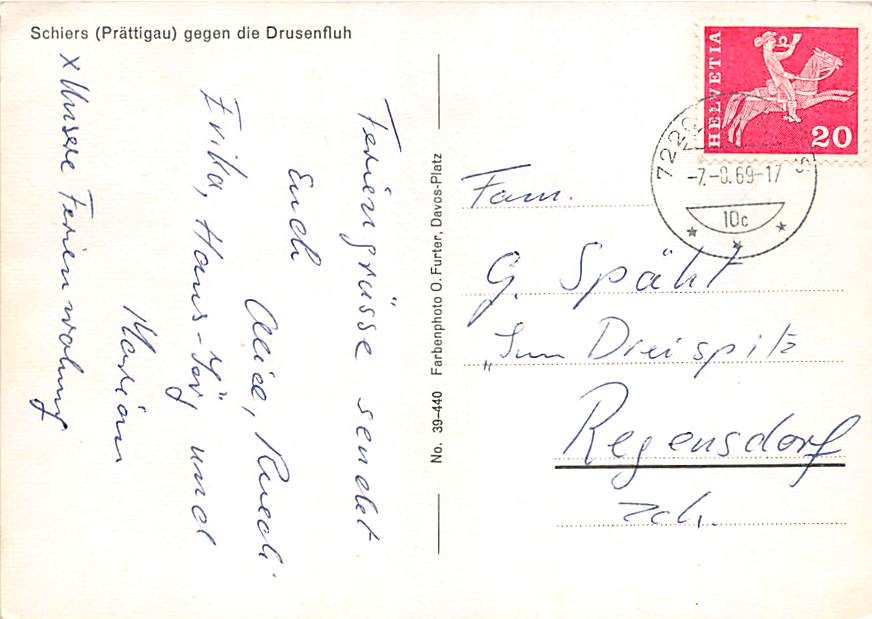 Schiers (Prättigau) gegen die Drusenfluh
HELVETIA
20
7220
-7.-8.69-17
10c
Feriengrüsse sendet
Euch
Alice, Ruedi
Erika, Hans-Jörg und
Marian
x Unsere Ferienwohnung
No. 39-440 Farbenphoto O. Furter, Davos-Platz
Fam.
G. Späht
"Im Dreispitz
Regensdorf
Zch.